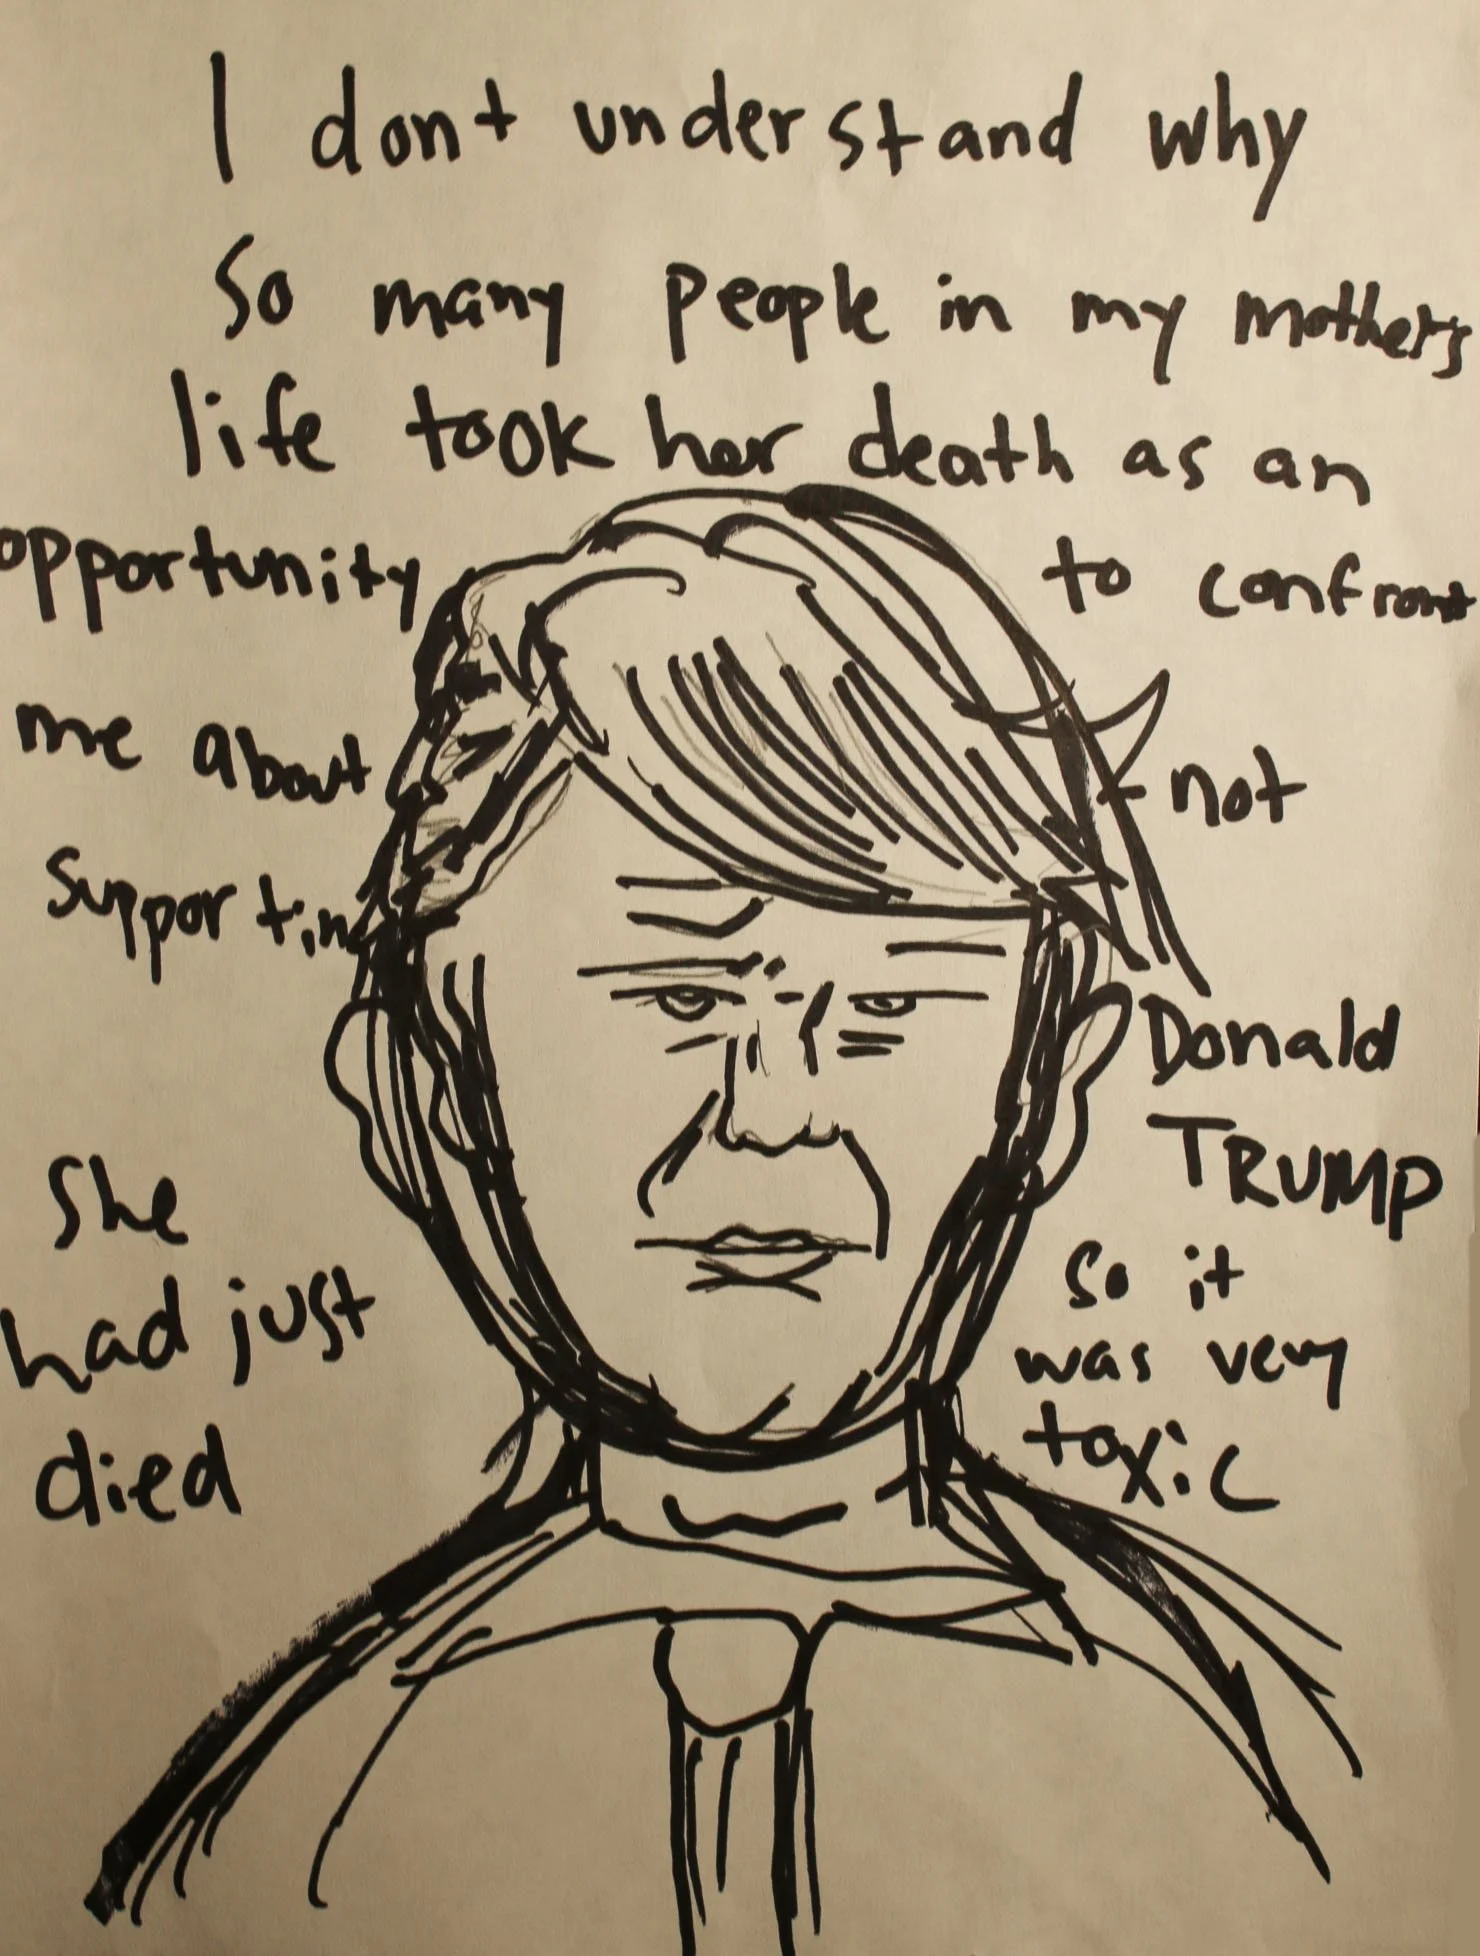 I dont understand why
So many people in my mothers
life took her death as an
opportunity to confront
me about not
supporting Donald
TRUMP
She
had just
died
so it
was very
toxic